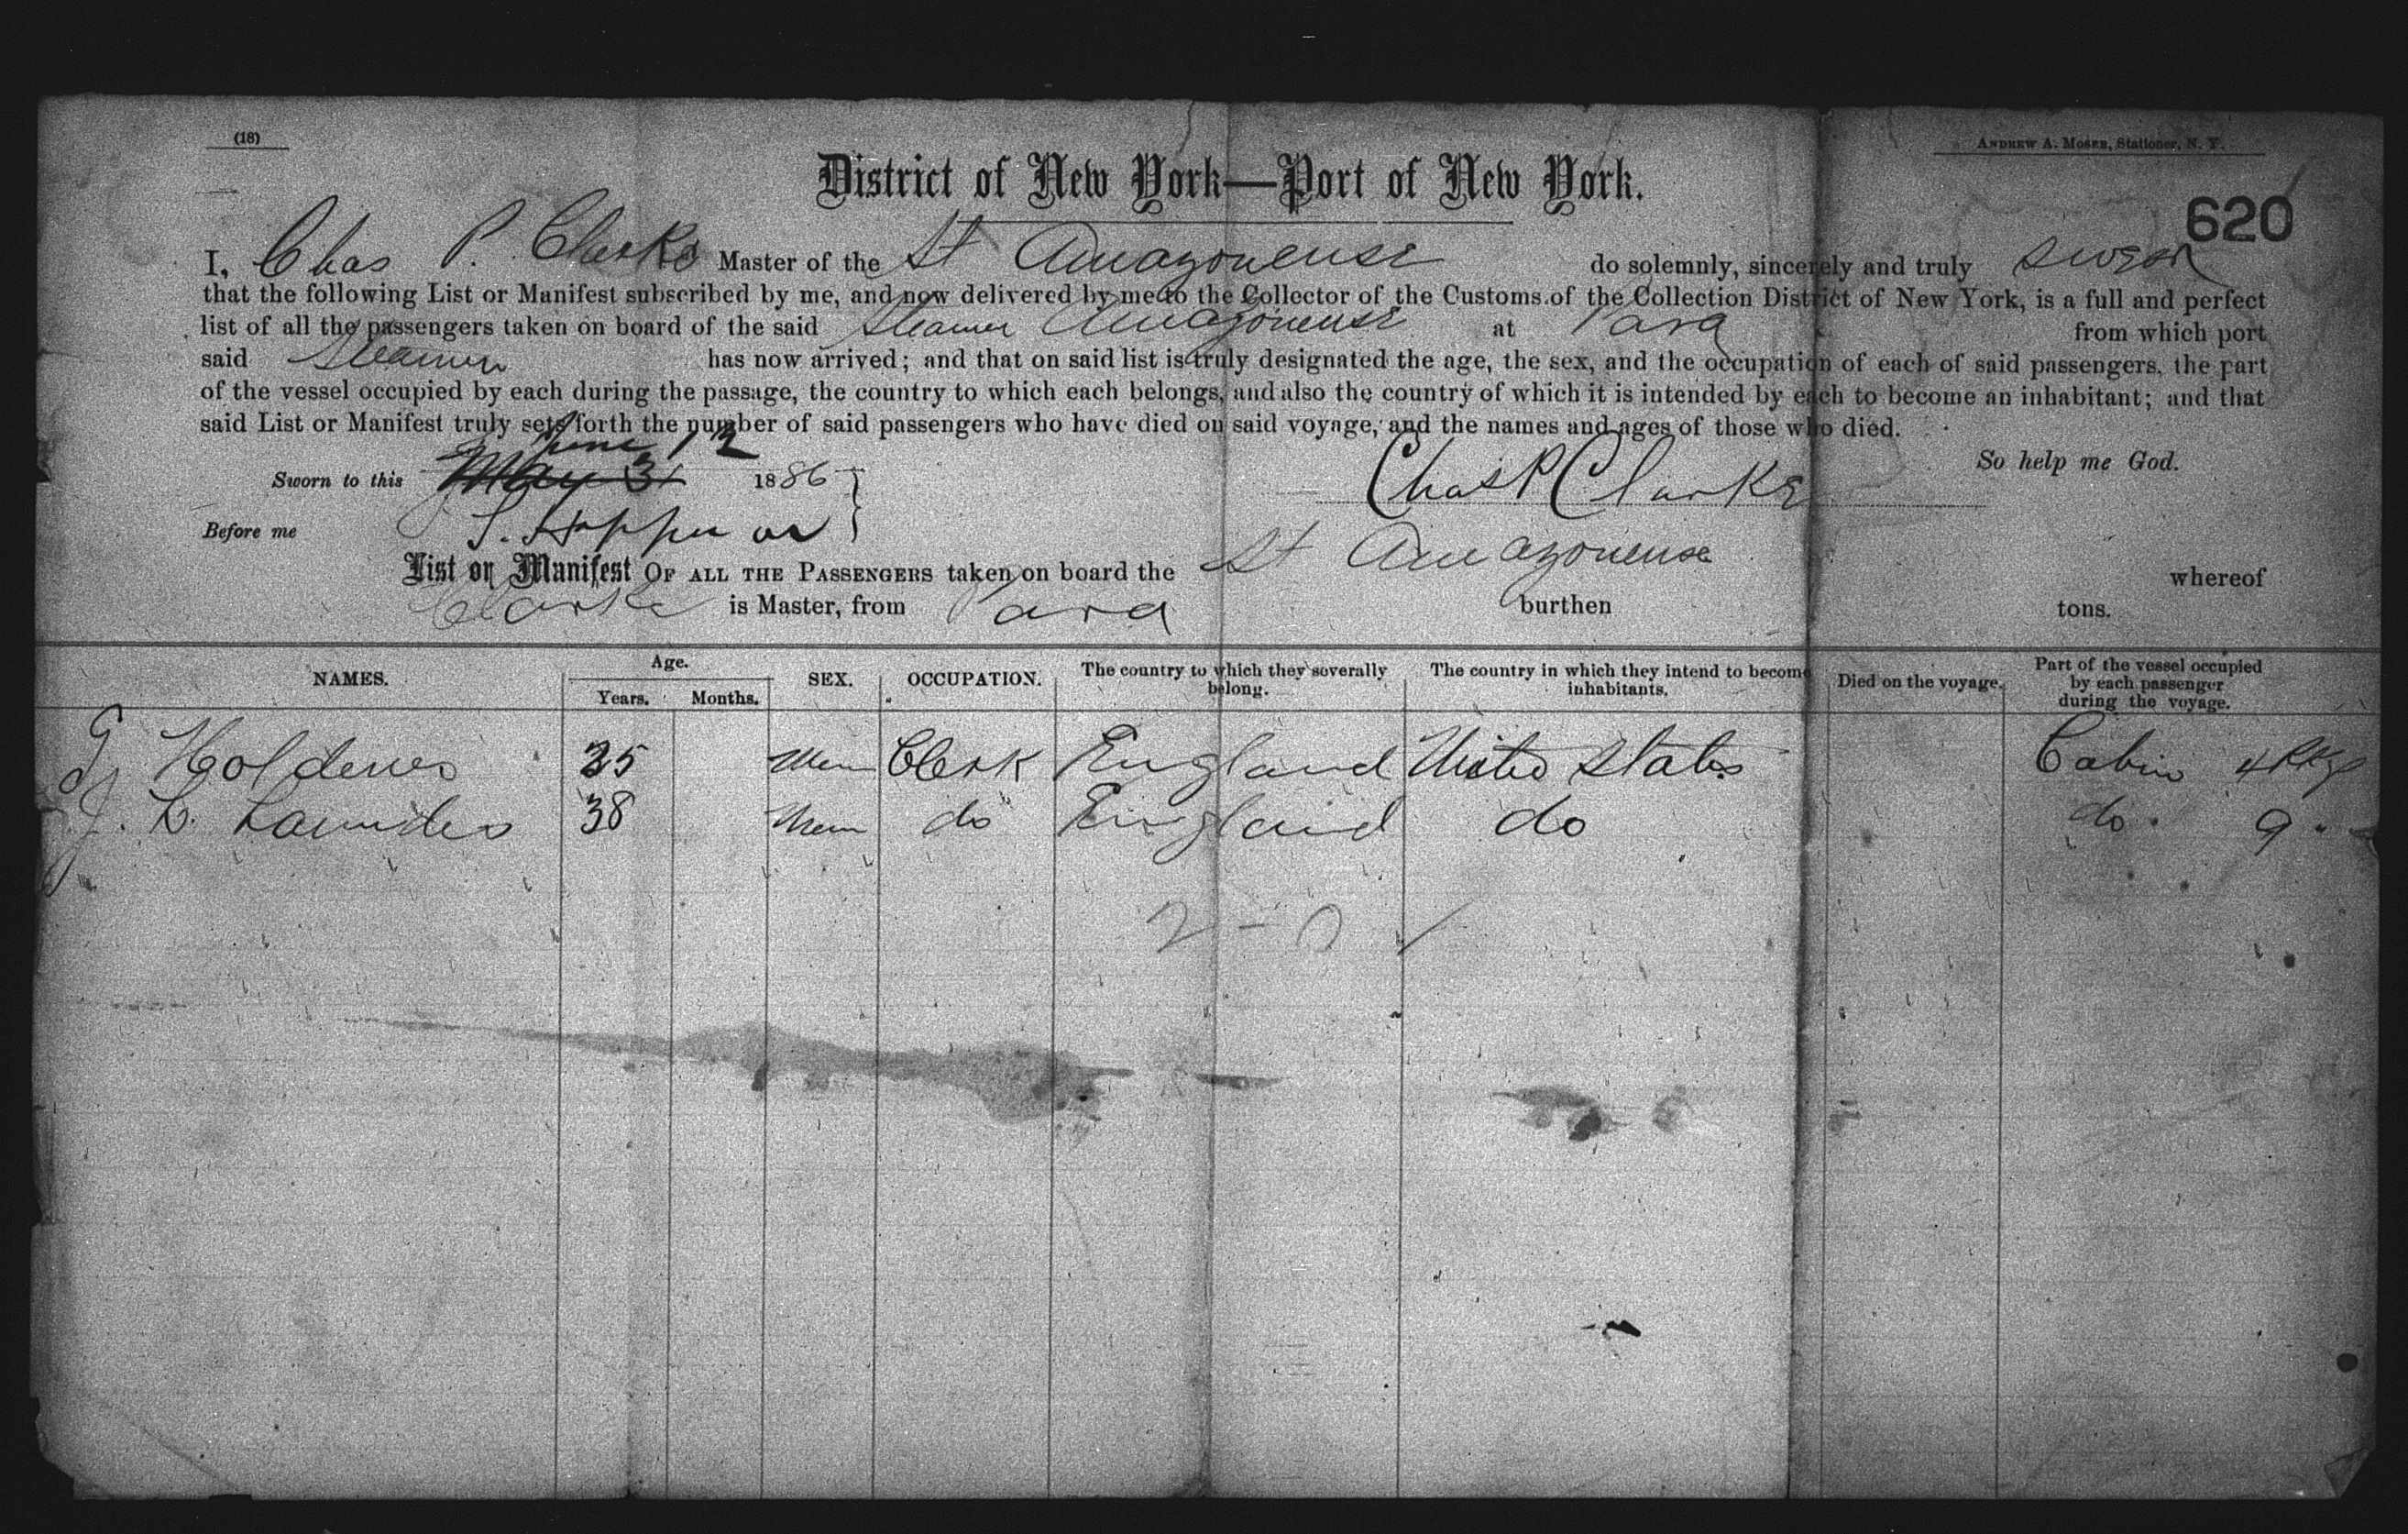 (18)
ANDREW A. MOSER, Stationer, N. Y.
District of New York—Port of New York.
620
I, Chas P. Clarke Master of the St Amazonense do solemnly, sincerely and truly swear
that the following List or Manifest subscribed by me, and now delivered by me to the Collector of the Customs of the Collection District of New York, is a full and perfect
list of all the passengers taken on board of the said Steamer Amazonense at Para from which port
said Steamer has now arrived; and that on said list is truly designated the age, the sex, and the occupation of each of said passengers, the part
of the vessel occupied by each during the passage, the country to which each belongs, and also the country of which it is intended by each to become an inhabitant; and that
said List or Manifest truly sets forth the number of said passengers who have died on said voyage, and the names and ages of those who died.
So help me God.
June 12
Sworn to this May 31 1886
Chas P Clarke
Before me
List or Manifest OF ALL THE PASSENGERS taken on board the St Amazonense whereof
Clarke is Master, from Para burthen tons.
NAMES. Age. Years. Months. SEX. OCCUPATION. The country to which they severally belong. The country in which they intend to become inhabitants. Died on the voyage. Part of the vessel occupied by each passenger during the voyage.
G Holdenes 25 Men Clerk England United States Cabin 4 Pkgs
J. L. Launders 38 Men do England do do 9 "
2-0